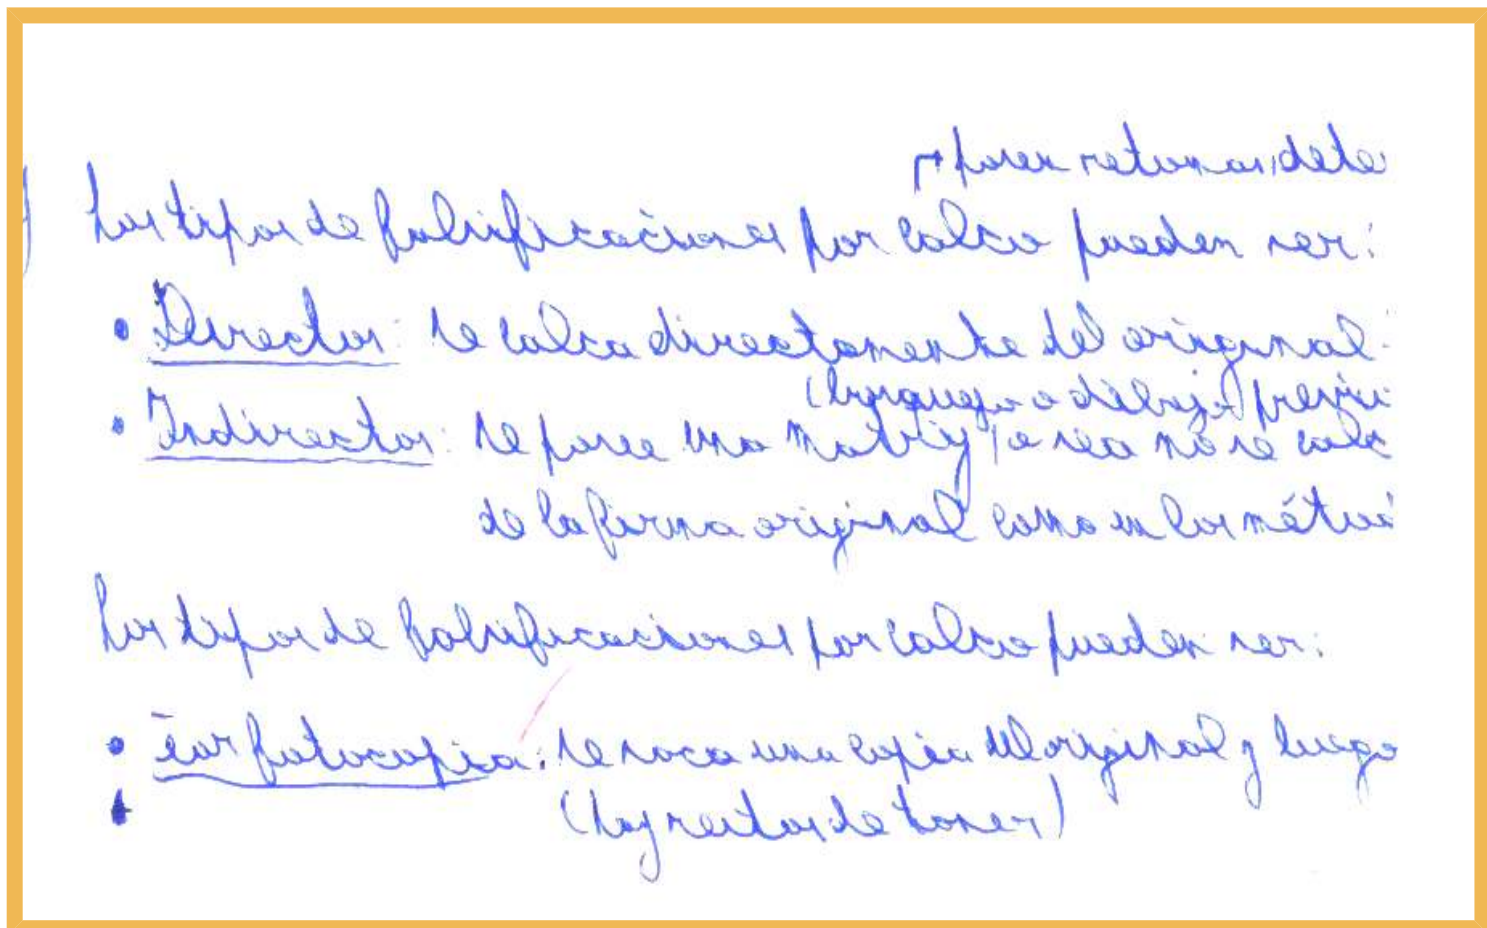 → poseen retomas, dete
Los tipos de falsificaciones por calco pueden ser:
• Directos: se calca directamente del original.
(bosquejo o dibujo previo
• Indirectos: se posee una matriz, o sea no se calc
de la firma original como en los méto
Los tipos de falsificaciones por calco pueden ser:
• fotocopia: se saca una copia del original y luego
(hay restos de toner)